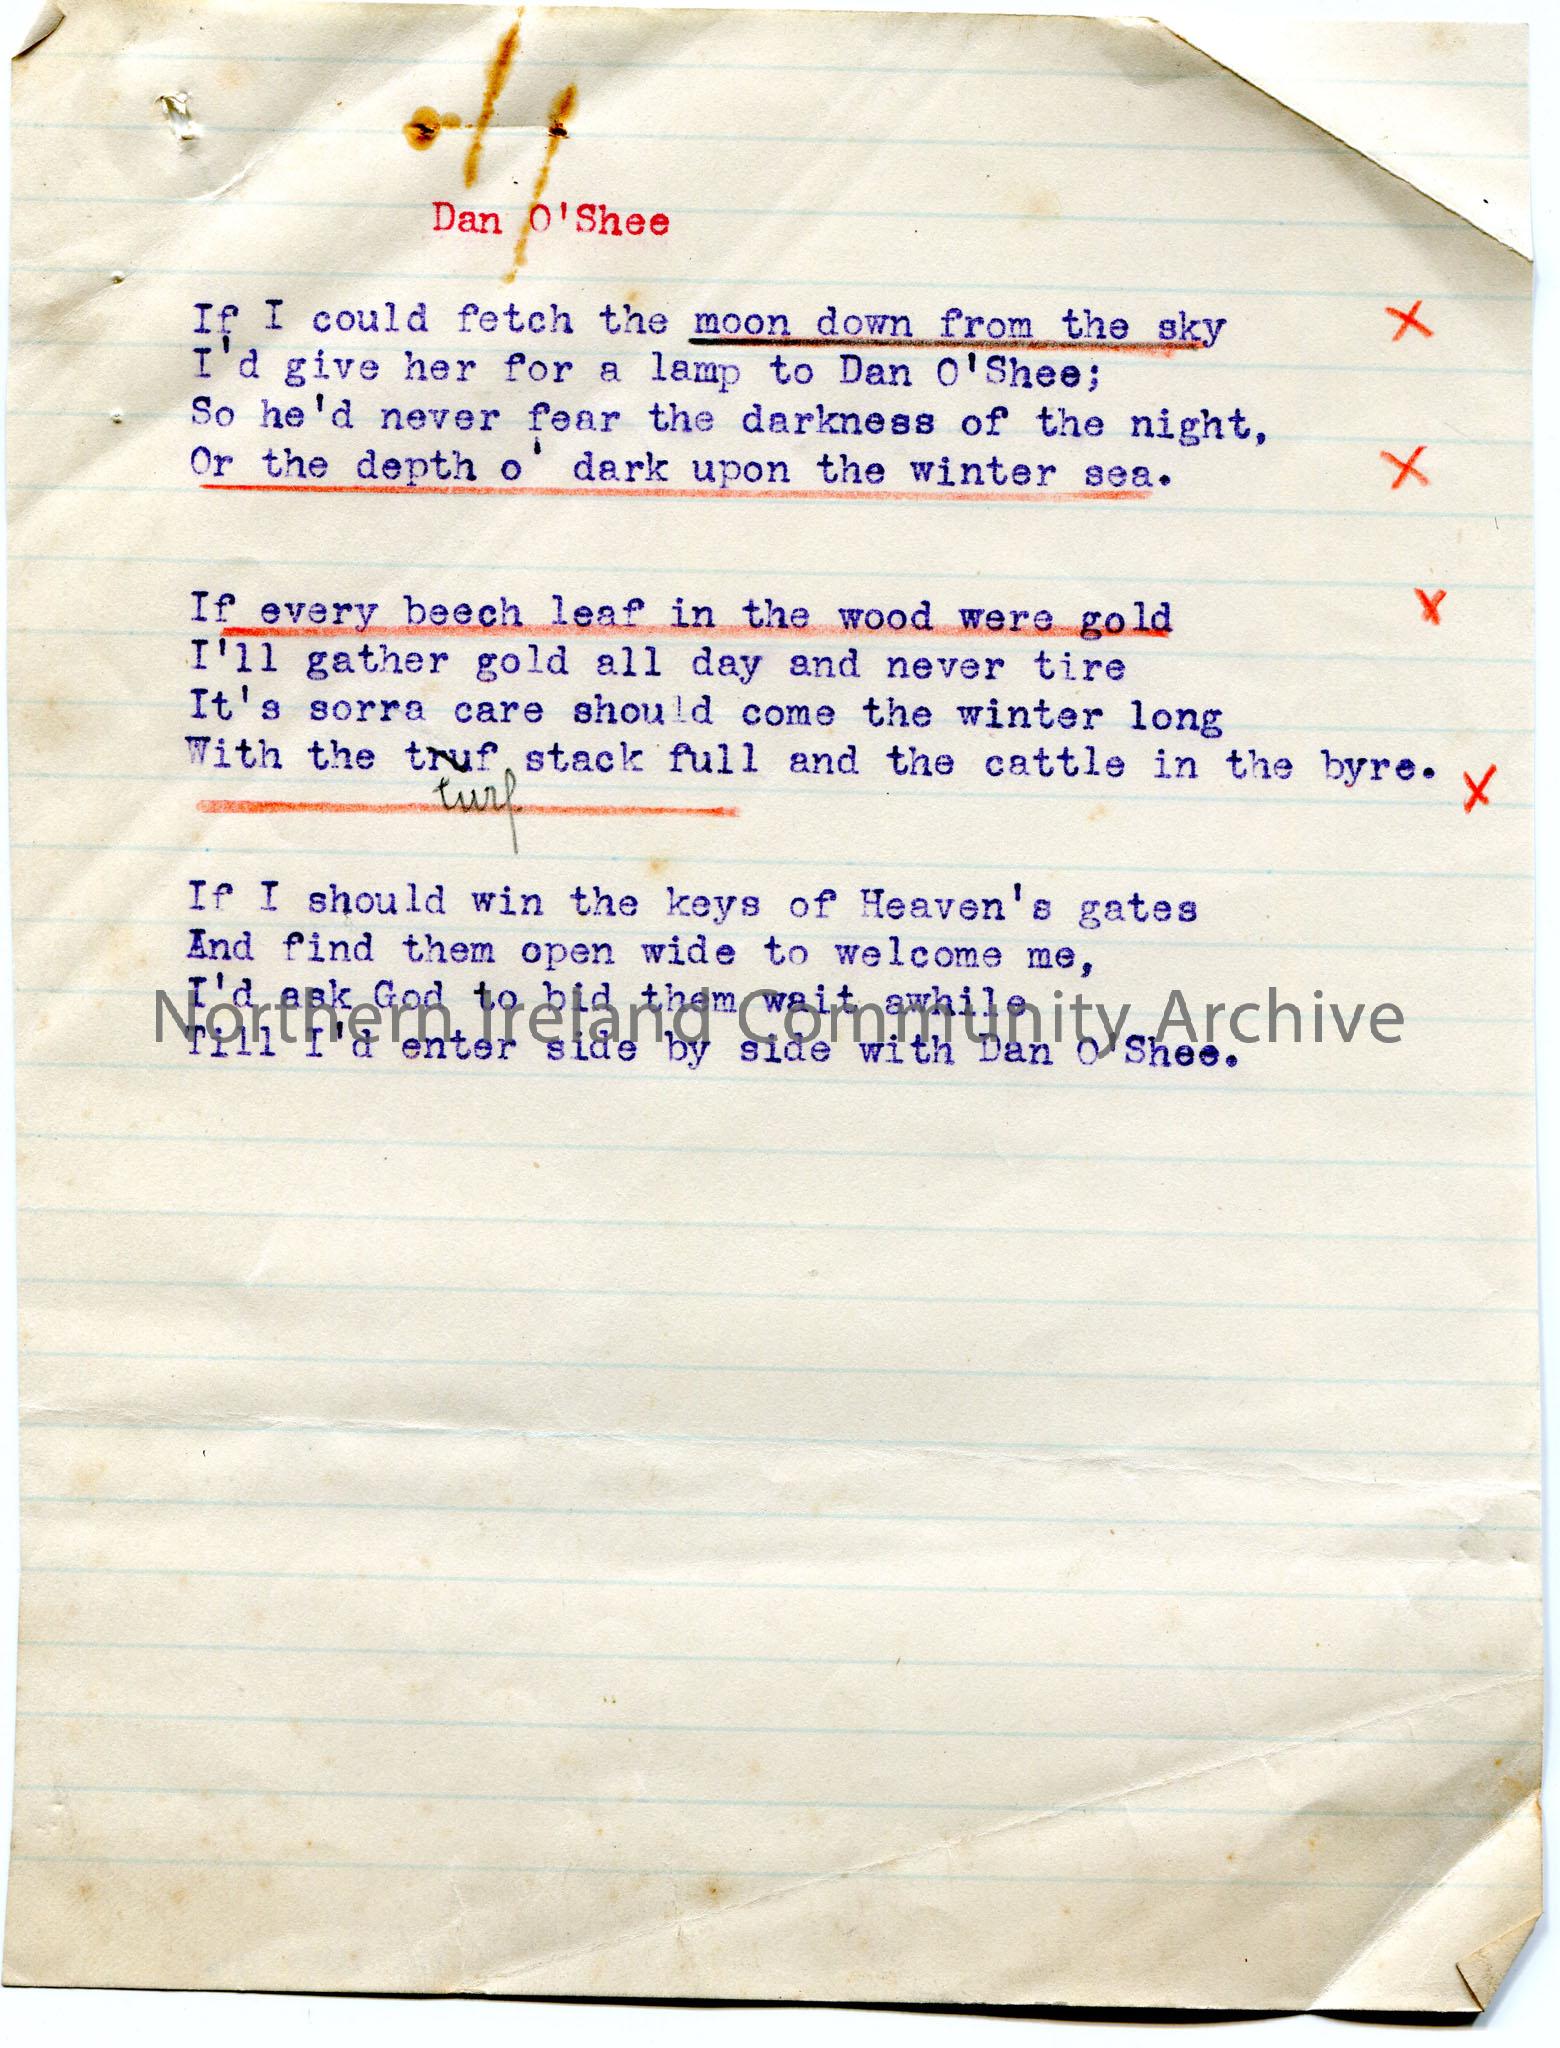 Dan O'Shee
If I could fetch the moon down from the sky
I'd give her for a lamp to Dan O'Shee;
So he'd never fear the darkness of the night,
Or the depth o' dark upon the winter sea.
If every beech leaf in the wood were gold
I'll gather gold all day and never tire
It's sorra care should come the winter long
With the truf stack full and the cattle in the byre.
turf
If I should win the keys of Heaven's gates
And find them open wide to welcome me,
I'd ask God to bid them wait awhile
Northern Ireland Community Archive
Till I'd enter side by side with Dan O'Shee.